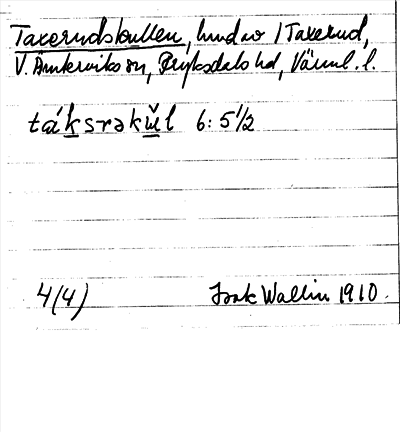 Taxerudskullen, hmd av 1 Taxerud,
V. Ämterviks sn, Fryksdals hd, Värml. l.
táksrakŭl 6:5 1/2
4(4)
Isak Wallin 1910.